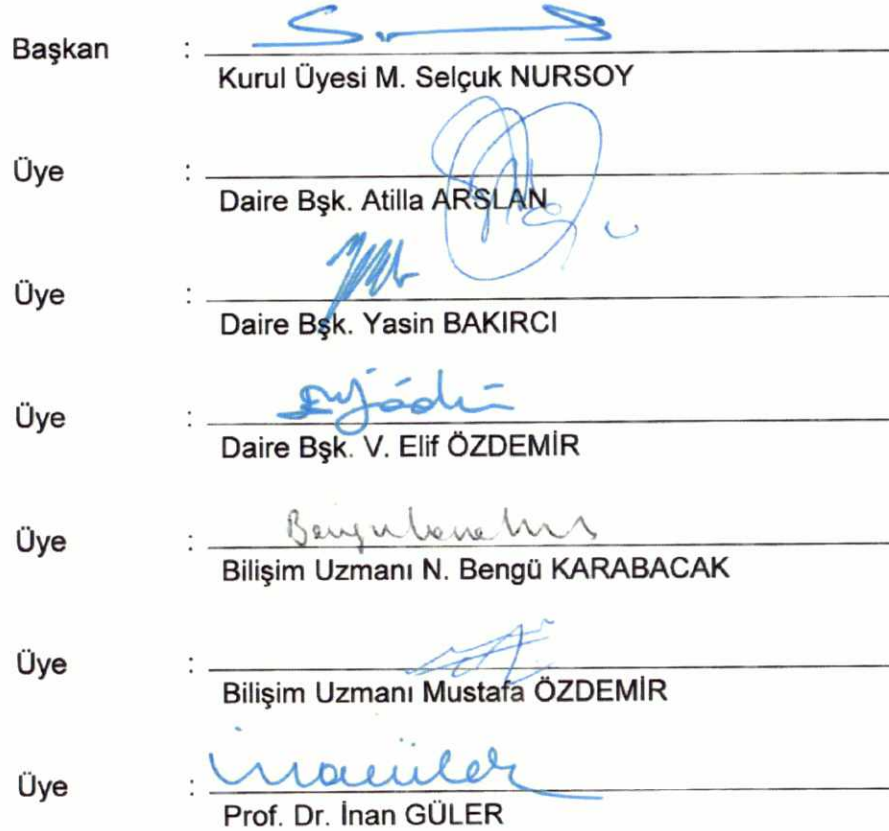 Başkan :
Kurul Üyesi M. Selçuk NURSOY
Üye :
Daire Bşk. Atilla ARSLAN
Üye :
Daire Bşk. Yasin BAKIRCI
Üye :
Daire Bşk. V. Elif ÖZDEMİR
Üye :
Bilişim Uzmanı N. Bengü KARABACAK
Üye :
Bilişim Uzmanı Mustafa ÖZDEMİR
Üye :
Prof. Dr. İnan GÜLER